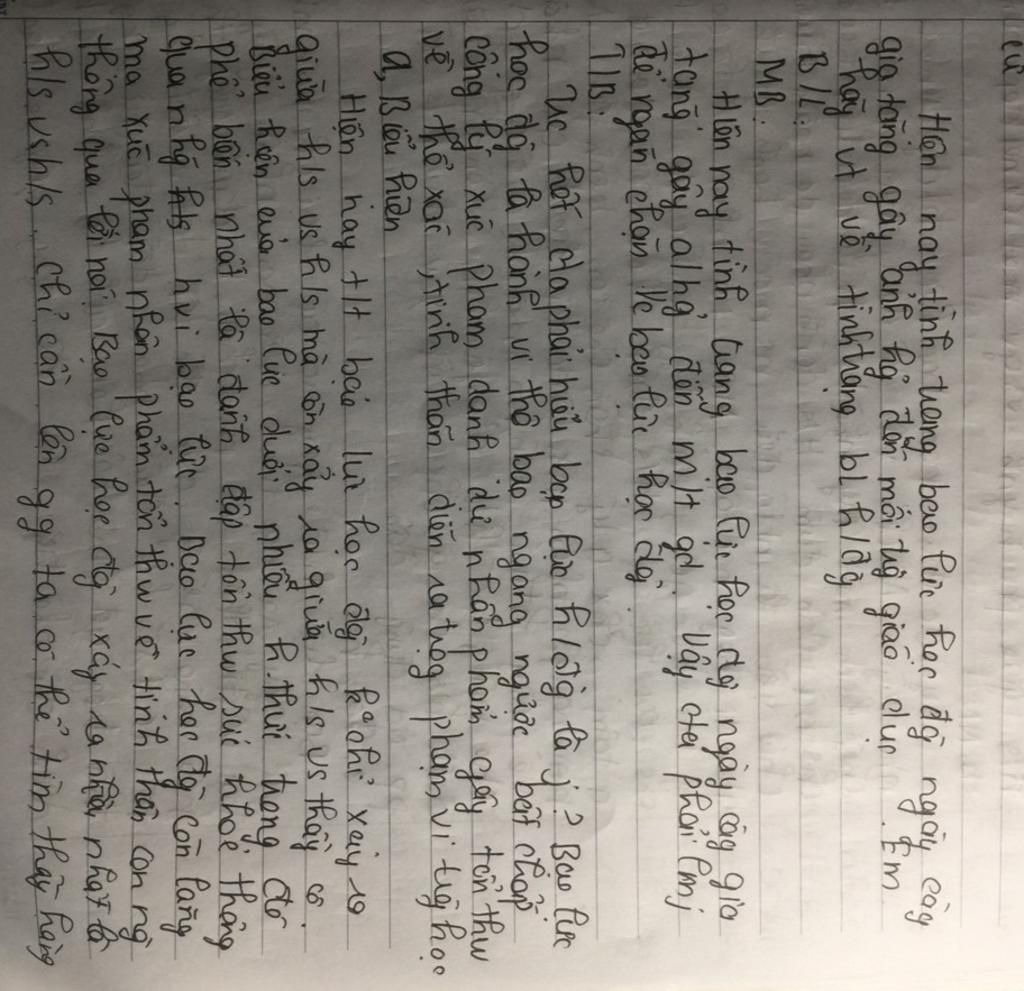 cứ
Hiện nay tình trạng bạo lực học đg ngày càg
gia tăng gây ảnh hg đến môi trg giáo dục. Em
hãy vt về tình trạng bl h/đg
B/L:
MB:
Hiện nay tình trạng bạo lực học đg ngày càg gia
tăng gây a/hg đến m/t gd. Vậy cta phải lmj
để ngăn chặn về bạo lực học đg.
T/B:
Trc hết cta phải hiểu bạo lực h/đg là j? Bạo lực
học đg là hành vi thô bạo ngang ngược bất chấp
công lý xúc phạm danh dự nhân phẩm gây tổn thw
về thể xác, tinh thần diễn ra trog phạm vi trg học
a, Biểu hiện
Hiện nay t/t bạo lực học đg ko chỉ xảy ra
giữa h/s vs h/s mà còn xảy ra giữa h/s vs thầy cô.
Biểu hiện của bạo lực dưới nhiều h.thức trong đó
phổ biến nhất là đánh đập tổn thw sức khoẻ thông
qua nhg hvi bạo lực. Bạo lực học đg còn làng
ma xúc phạm nhân phẩm tổn thw về tinh thần con ng
thông qua lời nói. Bạo lực học đg xảy ra nhiều nhất là
h/s vs h/s, chỉ cần lên gg ta có thể tìm thấy hàng